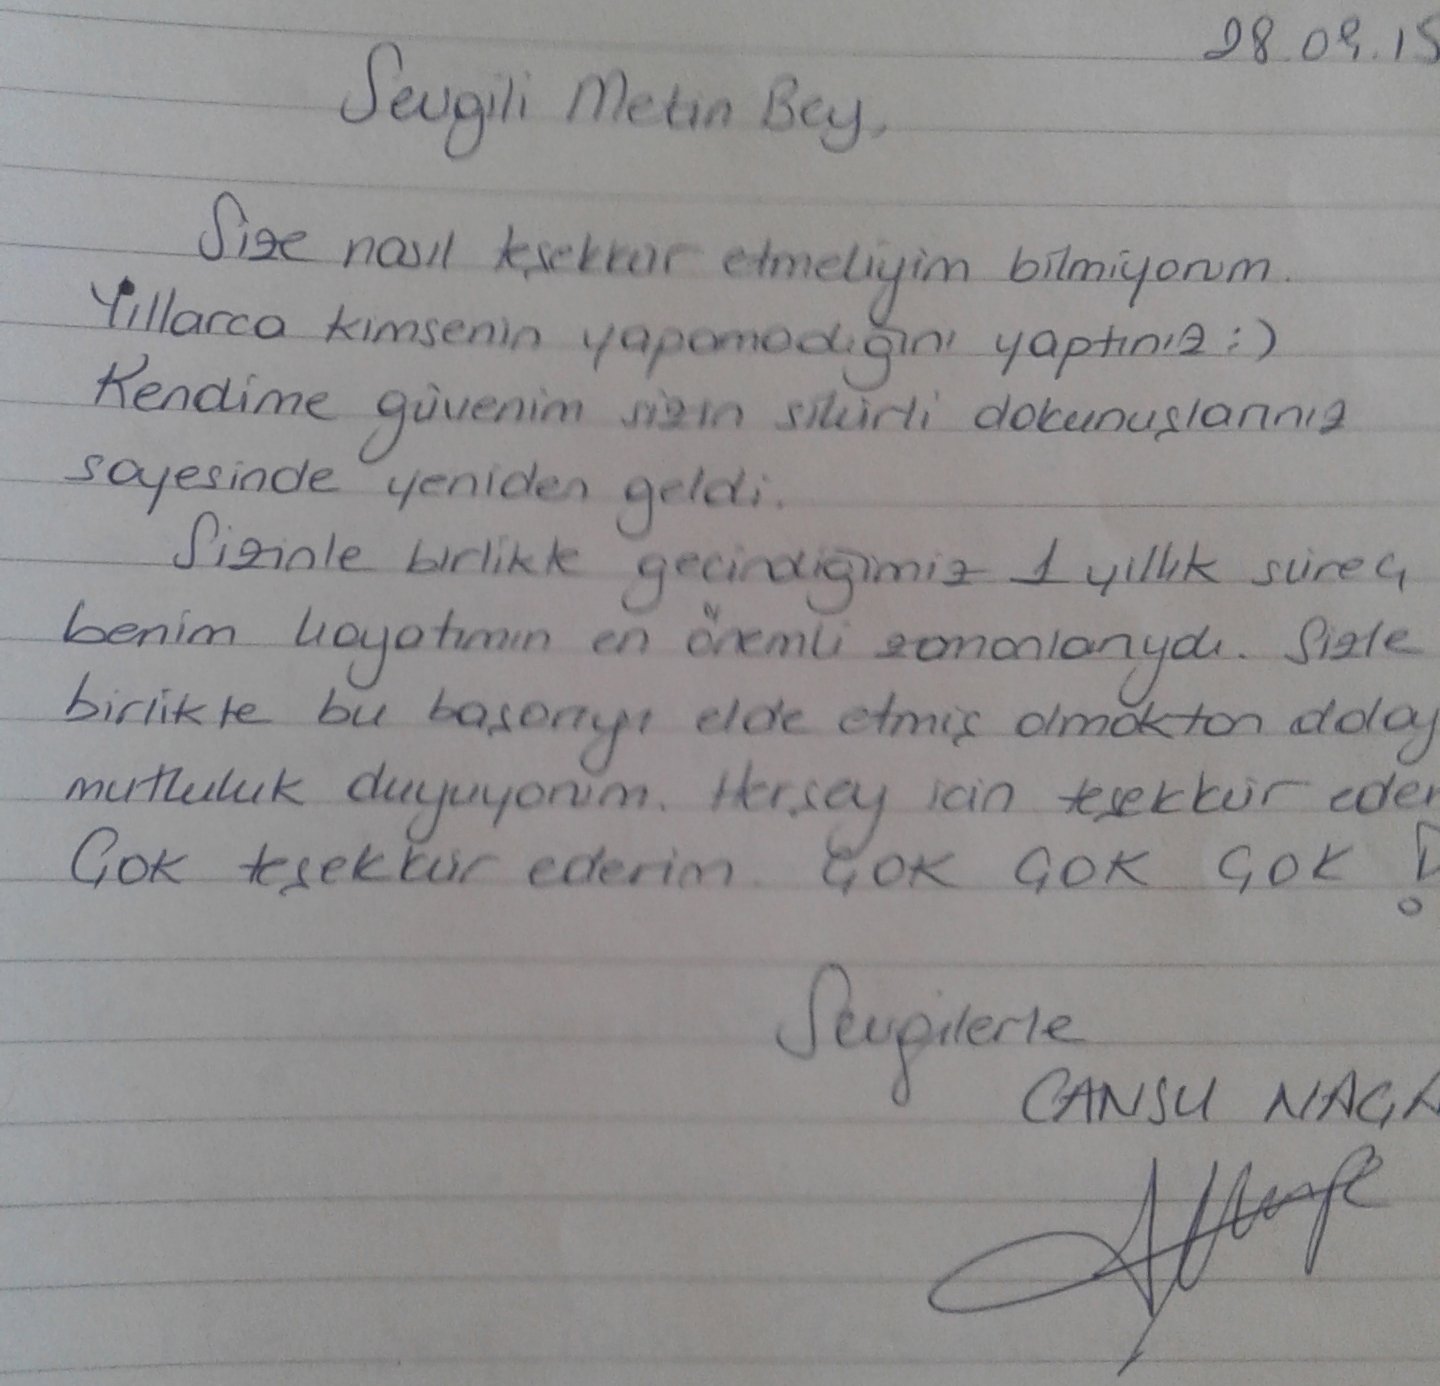 28.09.15
Sevgili Metin Bey,
Size nasıl teşekkür etmeliyim bilmiyorum.
Yıllarca kimsenin yapamadığını yaptınız :)
Kendime güvenim sizin sihirli dokunuşlarınız
sayesinde yeniden geldi.
Sizinle birlikte geçirdiğimiz 1 yıllık süreç
benim hayatımın en önemli zamanlarıydı. Sizle
birlikte bu başarıyı elde etmiş olmaktan dolay
mutluluk duyuyorum. Herşey için teşekkür eder
Çok teşekkür ederim. ÇOK ÇOK ÇOK !
Sevgilerle
CANSU NAÇA